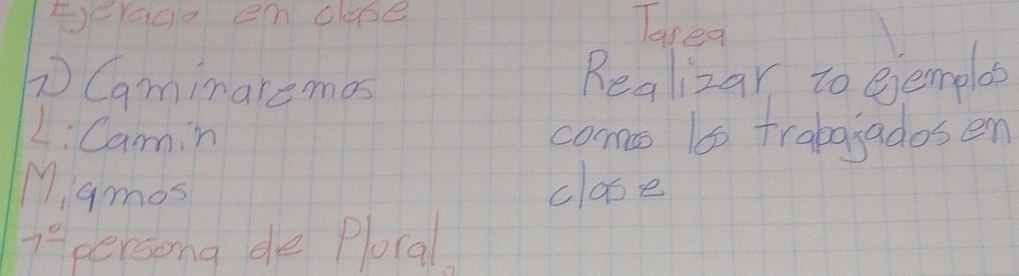 Ejercicio en clase
1) Caminaremos
L: Camin
M: amos
1º persona de Ploral.
Tarea
Realizar 10 ejemplos
como los trabajados en
clase